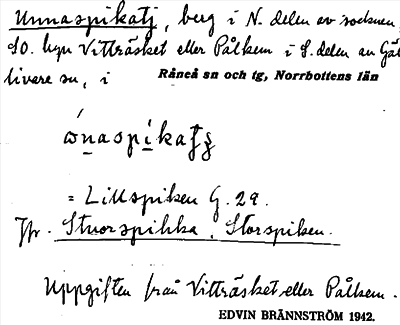 Unnaspikatj, berg i N. delen av socknen,
SO. byn Vitträsket eller Pålkem i S. delen av Gäl
livare sn, i
Råneå sn och tg, Norrbottens län
= Lillspiken G. 29.
Jfr. Stuorspihka, Storspiken.
Uppgiften från Vitträsket eller Pålkem.
EDVIN BRÄNNSTRÖM 1942.